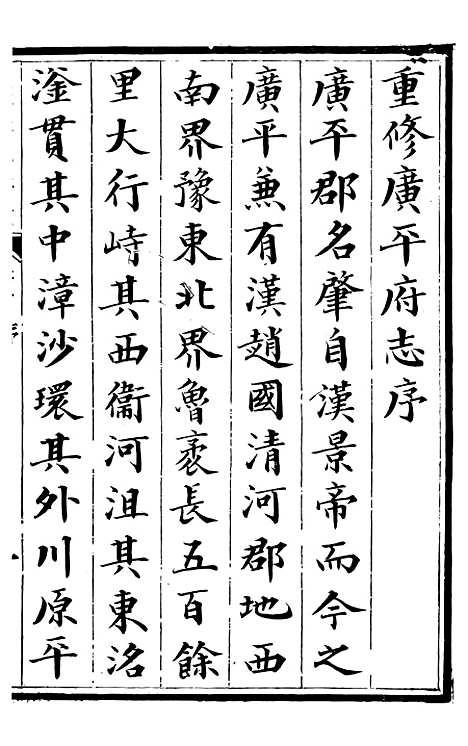 重修廣平府志序
廣平郡名肇自漢景帝而今之
廣平兼有漢趙國清河郡地西
南界豫東北界魯袤長五百餘
里大行峙其西衞河沮其東洺
滏貫其中漳沙環其外川原平